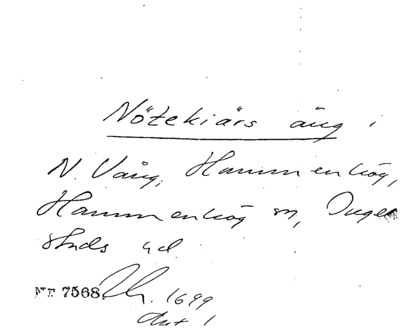 Nötekiärs äng i
N. Vång, Hammenhög,
Hammenhög sn, Inge
stads hd.
Nr 7568. Lh. 1699
Akt 1